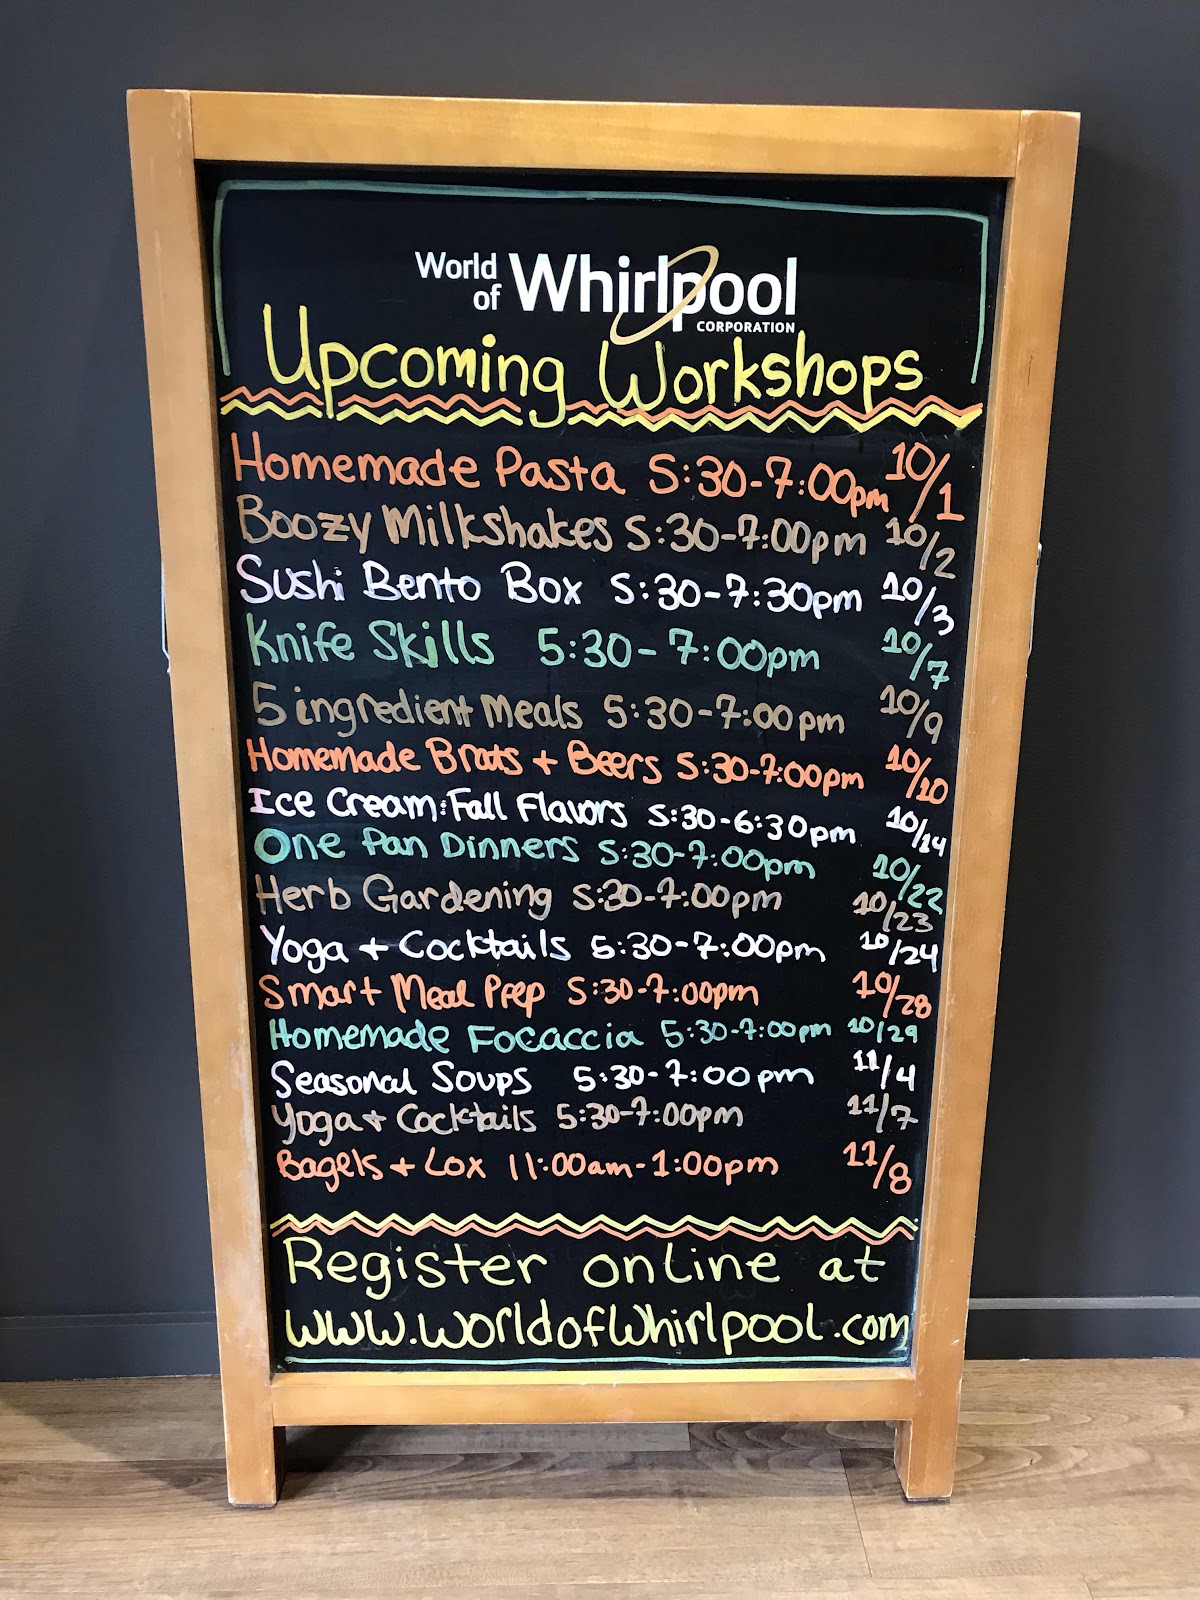 World of Whirlpool
CORPORATION
Upcoming Workshops
Homemade Pasta 5:30-7:00pm 10/1
Boozy Milkshakes 5:30-7:00pm 10/2
Sushi Bento Box 5:30-7:30pm 10/3
Knife Skills 5:30-7:00pm 10/7
5 ingredient Meals 5:30-7:00pm 10/9
Homemade Brats + Beers 5:30-7:00pm 10/10
Ice Cream: Fall Flavors 5:30-6:30pm 10/14
One Pan Dinners 5:30-7:00pm 10/22
Herb Gardening 5:30-7:00pm 10/23
Yoga + Cocktails 5:30-7:00pm 10/24
Smart Meal Prep 5:30-7:00pm 10/28
Homemade Focaccia 5:30-7:00pm 10/29
Seasonal Soups 5:30-7:00pm 11/4
Yoga + Cocktails 5:30-7:00pm 11/7
Bagels + Lox 11:00am-1:00pm 11/8
Register online at
www.worldofWhirlpool.com